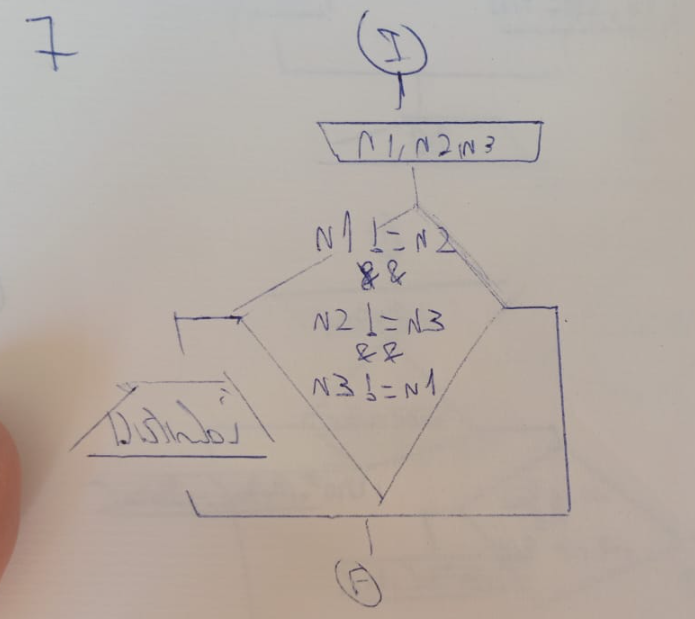 7
I
N1, N2, N3
N1 != N2
&&
N2 != N3
&&
N3 != N1
Distinti
F